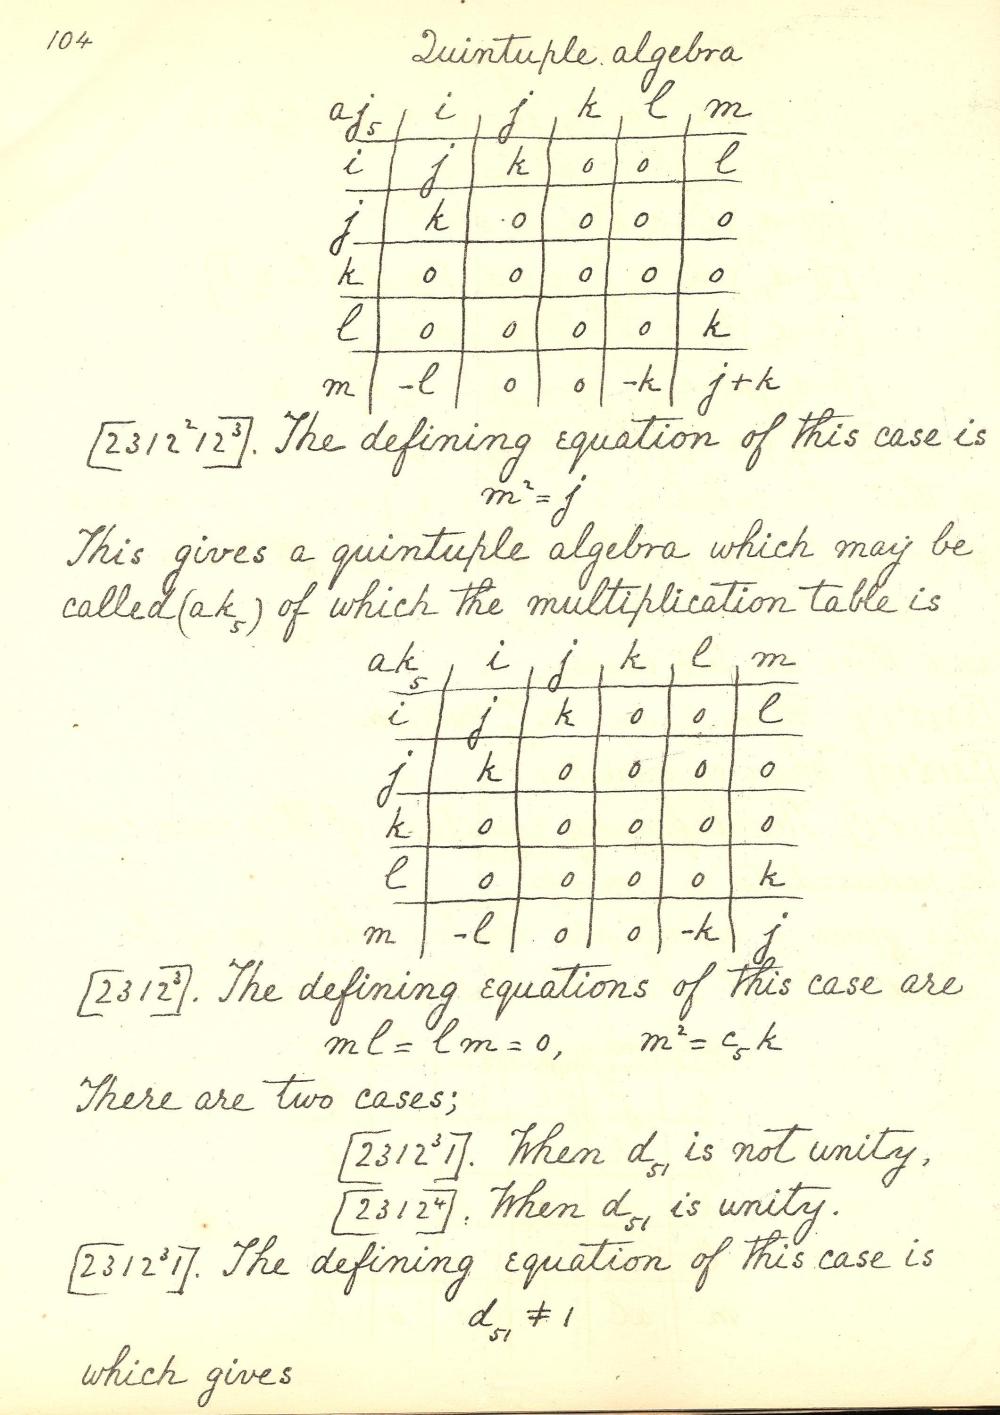 104
Quintuple algebra
aj₅ | i | j | k | l | m
i | j | k | 0 | 0 | l
j | k | 0 | 0 | 0 | 0
k | 0 | 0 | 0 | 0 | 0
l | 0 | 0 | 0 | 0 | k
m | -l | 0 | 0 | -k | j+k
[2312²12³]. The defining equation of this case is
m² = j
This gives a quintuple algebra which may be
called (ak₅) of which the multiplication table is
ak₅ | i | j | k | l | m
i | j | k | 0 | 0 | l
j | k | 0 | 0 | 0 | 0
k | 0 | 0 | 0 | 0 | 0
l | 0 | 0 | 0 | 0 | k
m | -l | 0 | 0 | -k | j
[2312³]. The defining equations of this case are
ml = lm = 0, m² = c₅k
There are two cases;
[2312³1]. When d₅₁ is not unity,
[2312⁴]. When d₅₁ is unity.
[2312³1]. The defining equation of this case is
d₅₁ ≠ 1
which gives